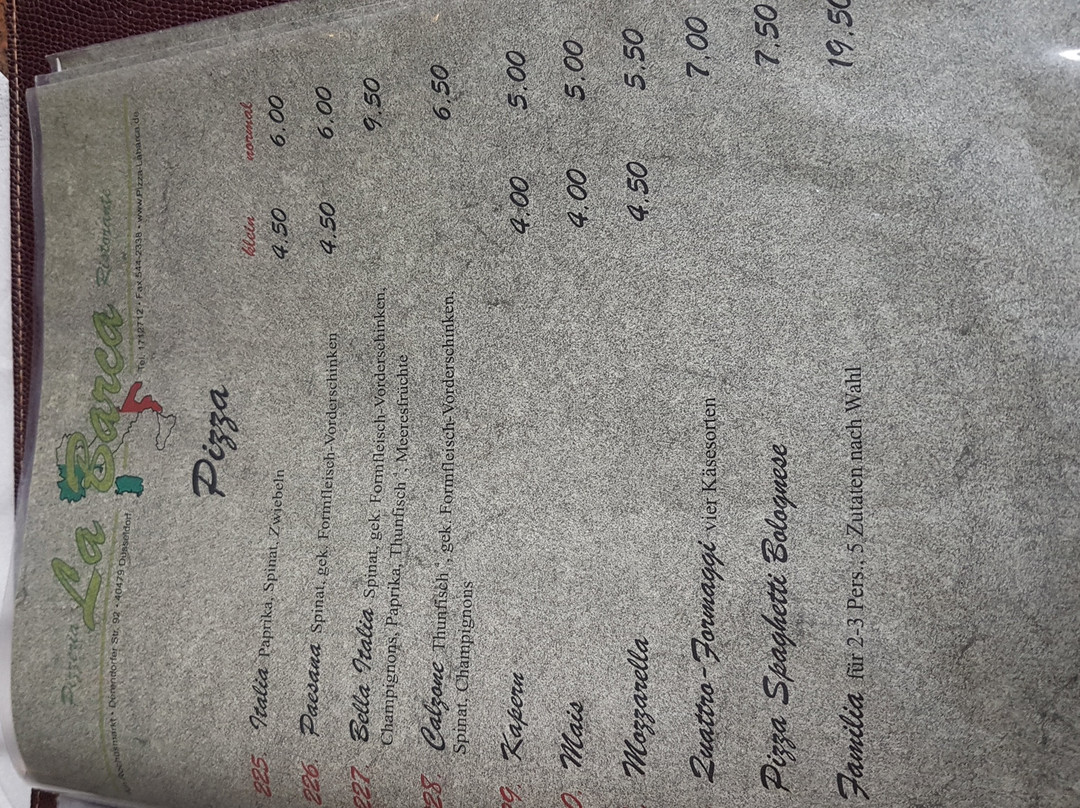 Pizzeria La Barca Ristorante
Dinendorfer Str. 92 • 40479 Düsseldorf Tel. 1712712 • Fax 544-2338 • www.Pizza-Labarca.de
Pizza
klein normal
225 Italia Paprika, Spinat, Zwiebeln 4.50 6.00
226 Paesana Spinat, gek. Formfleisch-Vorderschinken 4.50 6.00
227 Bella Italia Spinat, gek. Formfleisch-Vorderschinken, 9.50
Champignons, Paprika, Thunfisch, Meeresfrüchte
28 Calzone Thunfisch, gek. Formfleisch-Vorderschinken, 6.50
Spinat, Champignons
9. Kapern 4.00 5.00
0. Mais 4.00 5.00
Mozzarella 4.50 5.50
Quattro-Formaggi vier Käsesorten 7.00
Pizza Spaghetti Bolognese 7.50
Familia für 2-3 Pers., 5 Zutaten nach Wahl 19.50